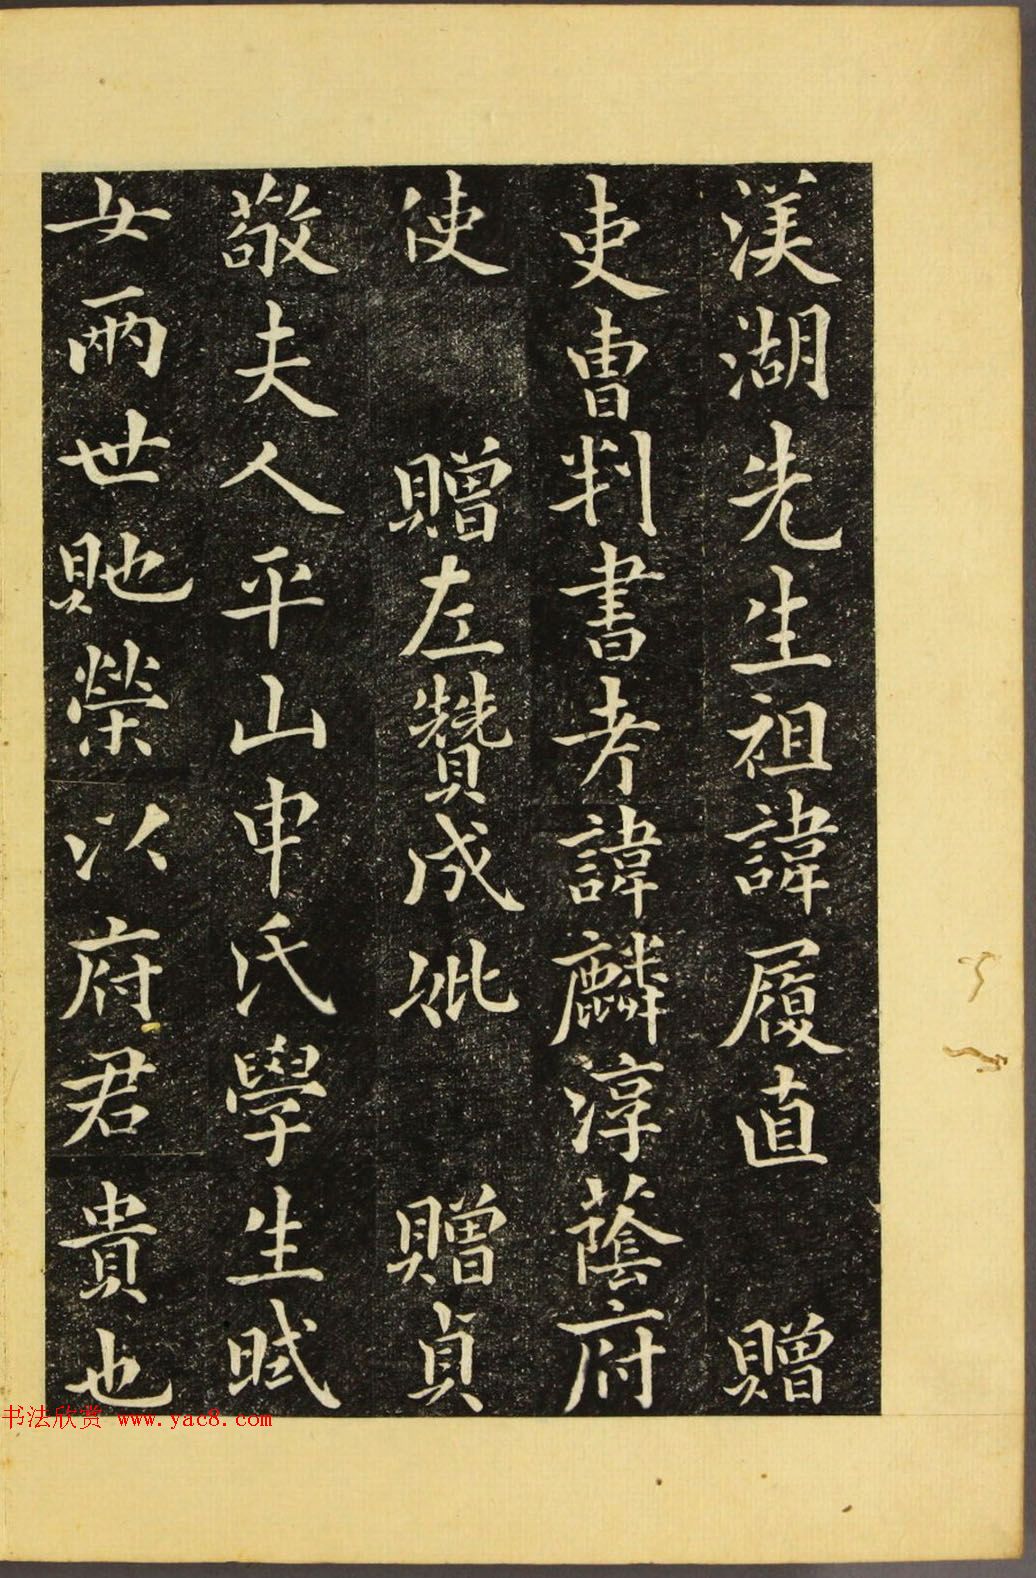 渼湖先生祖諱履直 贈
吏曹判書考諱麟淳蔭府
使 贈左贊成妣 贈貞
敬夫人平山申氏學生晠
女兩世貤榮以府君貴也
书法欣赏 www.yac8.com